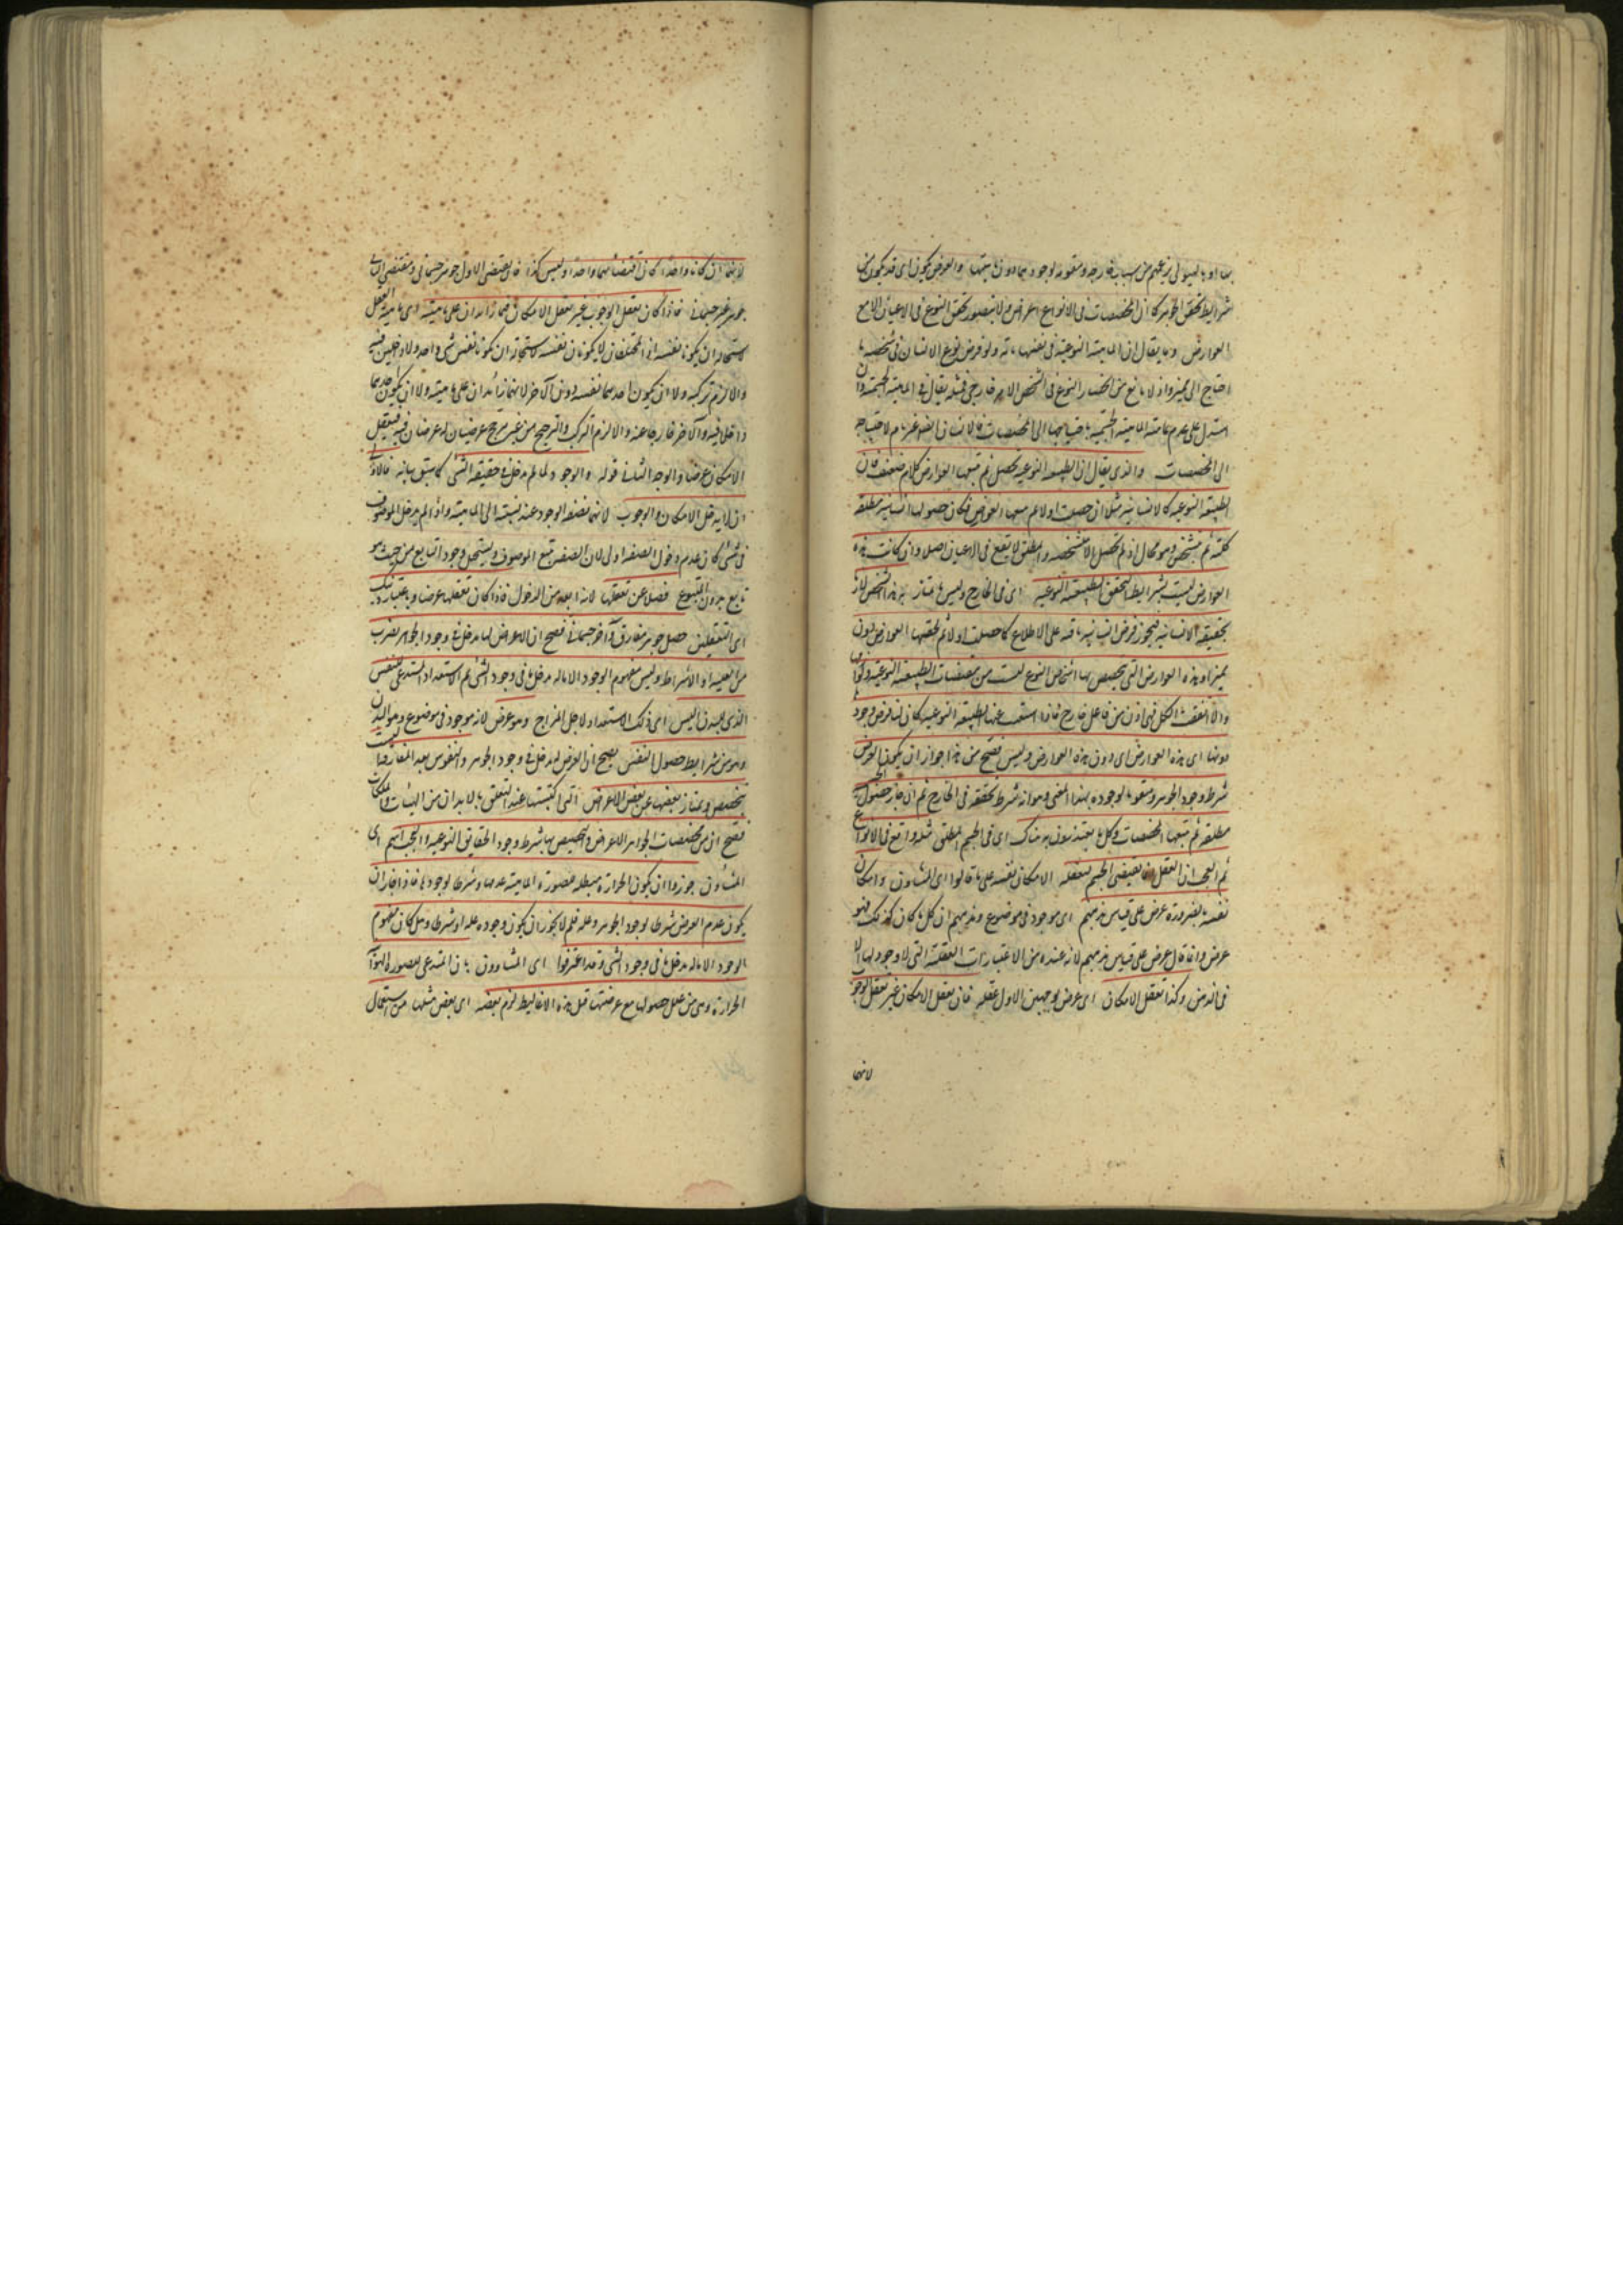 شرايط تحقق الجوهر كما ان المخصصات فى الانواع اعراض ولا يتصور تحقق النوع فى الاعيان الا مع
العوارض وما يقال ان الماهية النوعية فى نفسها تامة ولو فرض نوع الانسان فى شخصه ما
احتاج الى مميز واذ لا مانع من انحصار النوع فى الشخص الا امر خارجى فمثله يقال فى الماهية الجسمية وان
استدل على عدم تمامية الماهية الجسمية باحتياجها الى المخصصات فالانسان ايضا غير تام لاحتياجه
الى المخصصات والذى يقال ان الطبيعة النوعية تحصل ثم يتبعها العوارض كلام ضعيف فان
الطبيعة النوعية كالانسانية مثلا ان حصلت اولا ثم تبعها العوارض فكان حصولها انسانية مطلقة
كلية ثم تشخص وهو محال اذ لم تحصل الا متشخصة والمطلق لا يقع فى الاعيان اصلا وان كانت هذه
العوارض ليست بشرايط لتحقق الطبيعة النوعية اى فى الخارج وليس ما يمتاز به هذا الشخص لازم
لحقيقة الانسانية فيجوز فرض انسانية باقية على الاطلاق كما حصلت اولا ثم لحقها العوارض دون
مميز اذ هذه العوارض التى تخصص بها اشخاص النوع ليست من مقتضيات الطبيعة النوعية ولوازمها
والا اتفقت الكل فهى اذن من فاعل خارج فاذا استغنت عنها الطبيعة النوعية كان لنا فرض وجود
دونها اى هذه العوارض اى دون هذه العوارض وليس فصح من هذا جواز ان يكون العرض
شرط وجود الجوهر ومقوما لوجوده بهذا المعنى وهو انه شرط تحققه فى الخارج ثم ان جاز حصول الجسمية
مطلقة ثم يتبعها المخصصات وكل ما يعتذر به هناك اى فى الجسم المطلق مثله واقع فى الانواع
ثم العجب ان العقل انما يقتضى الجسم لتعقله الامكان نفسه على ما قالوا اى المشاؤن وامكان
نفسه بالضرورة عرض على قياس مذهبهم اى موجود فى موضوع ومذهبهم ان كل ما كان كذلك فهو
عرض وانما قال عرض على قياس مذهبهم لانه عنده من الاعتبارات العقلية التى لا وجود لها الا
فى الذهن وكذا تعقل الامكان اى عرض لوجهين الاول تعقله فان تعقل الامكان غير تعقل الوجوب
لانهما
لانهما ان كانا واحدا كان اقتضائهما واحدا وليس كذا فان مقتضى الاول جوهر جسمانى ومقتضى الثانى
جوهر غير جسمانى فاذا كان تعقل الوجوب غير تعقل الامكان فهما زائدان على ماهيته اى ماهية العقل
لاستحالة ان يكونا نفسه اذ المختلفان لا يكونان نفسه لاستحالة ان يكونا نفس شى واحد ولا داخلين فيه
والا لزم تركبه ولا ان يكون احدهما نفسه دون الآخر لانهما زائدان على ماهيته ولا ان يكون احدهما
داخلا فيه والآخر خارجا عنه والا لزم التركب والترجيح من غير مرجح عرضيان له عرضان فيه فتعقل
الامكان عرض والوجه الثانى قوله والوجود لما لم يدخل فى حقيقة الشى كما سبق بيانه فالاولى
ان لا يدخل الامكان والوجوب لانهما صفة الوجود عند نسبته الى الماهية واذا لم يدخل الموصوف
فى شى كان عدم دخول الصفة اولى لان الصفة تتبع الموصوف ويستحيل وجود التابع من حيث هو
تابع بدون المتبوع فضلا عن تعقلها لانه ابعد من الدخول فاذا كان تعقلها عرضا وباعتبار ذلك
اى التعقلين حصل جوهر مفارق وآخر جسمانى فصح ان الاعراض لها مدخل فى وجود الجواهر بضرب
من العلية او الاشتراط وليس مفهوم الوجود الا ماله مدخل ما فى وجود الشى ثم الاستعداد المستدعى للنفس
الذى للبدن اليس اى ذلك الاستعداد لاجل المزاج وهو عرض لانه موجود فى موضوع وهو البدن
وهو من شرايط حصول النفس فصح ان العرض له مدخل فى وجود الجوهر والنفوس بعد المفارقة اليست
تتخصص ويمتاز بعضها عن بعض بالاعراض التى اكتسبتها عند التعلق بالابدان من الهيئات والملكات
فصح ان من مخصصات الجواهر الاعراض والتخصيص بها شرط وجود الحقايق النوعية والعجب انهم اى
المشاؤن جوزوا ان يكون الحرارة مبطلة لصورة المائية عدمها وشرطا لوجودها فاذا جاز ان
يكون عدم العرض شرطا لوجود الجوهر وعلة فلم لا يجوز ان يكون وجوده علة او شرطا وهل كان مفهوم
الوجود الا ماله مدخل ما فى وجود الشى وقد اعترفوا اى المشاؤون بان المستدعى للصورة الهوائية
الحرارة وهى من علل حصولها مع عرضيتها قبل هذه الاغاليط لزم بعضه اى بعض منها من استعمال